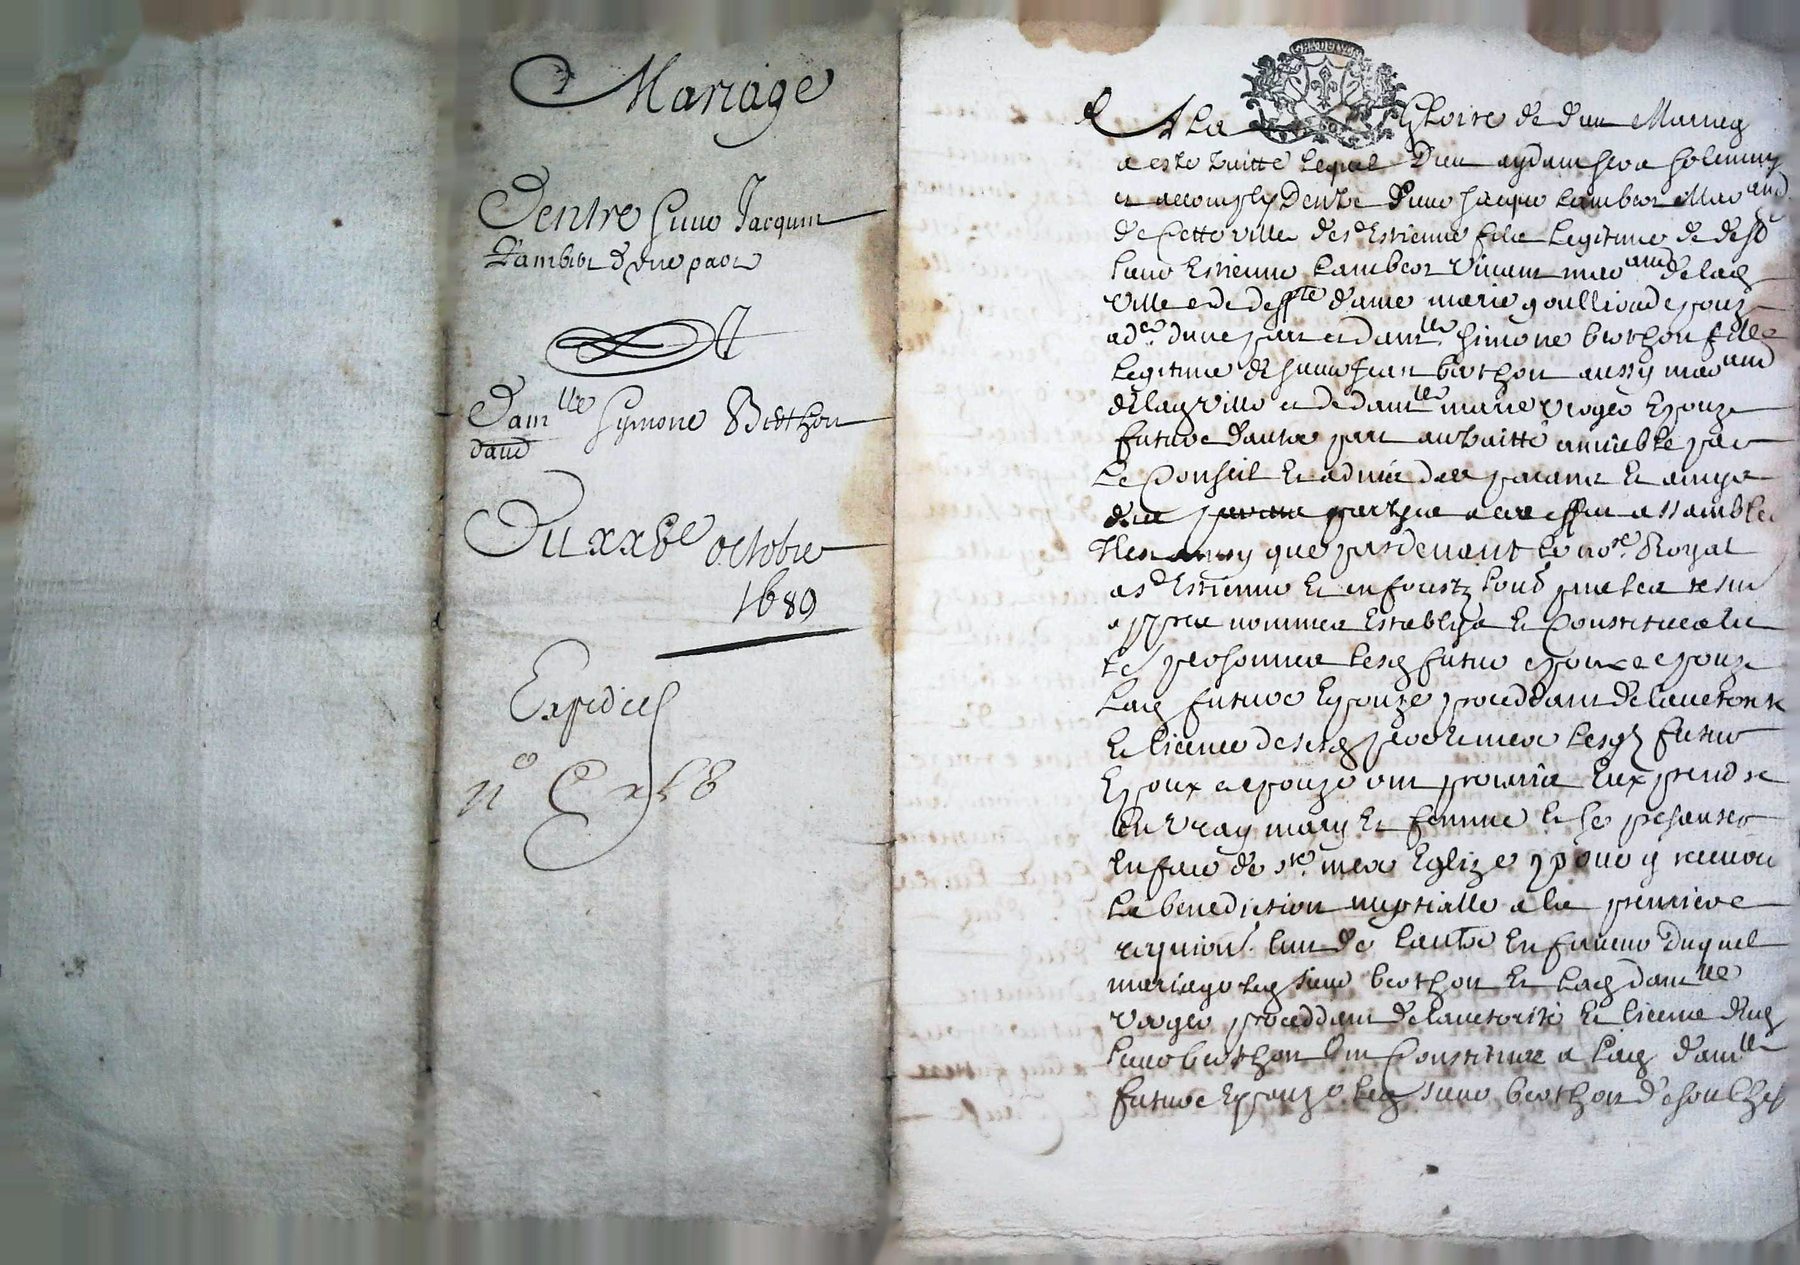 Mariage
Dentre sieur Jacques
Lambert d'une part
Damlle Symone Berthon
daud
Du xxbe octobre
1689
Expediel
no
GNALDELYON
A La Gloire de dieu Mariag
a este traitté lequel Dieu aydant sera solemny
et accomply Dentre sieur Jacque Lambert Marand
de Cette ville de st Estienne filz Legitime de deft
sieur Estienne Lambert vivant marand de lad
ville et de deffte dame marie espoux
ade dune part et damlle Simone berthon fille
Legitime de sieur Jean berthon aussy marand
de lad ville et de damlle marie vroger Espouze
future dautre part au traitté amiable par
Le Conseil et advis des parans et amys
des partyes a cet effet assamblé
que pardevant le nore Royal
a st Estienne et en foretz soubz
apprea nommes Establys et Constitues
personnes lesd futur espoux et espouze
Lad future Espouze proceddant de lauctorite
et licence de sesd pere et mere lesd futur
Espoux et espouze ont promis eux prendre
en vray mary et femme et se presanter
en face de ste mere Eglize pour y recevoir
la benediction nuptialle a la premiere
requision lun de lautre En faveur duquel
mariage led sieur berthon et lad damlle
vroger proceddant de lauctorité et licence dud
sieur berthon ont Constitué a lad damlle
future Espouze led sieur berthon de son chef